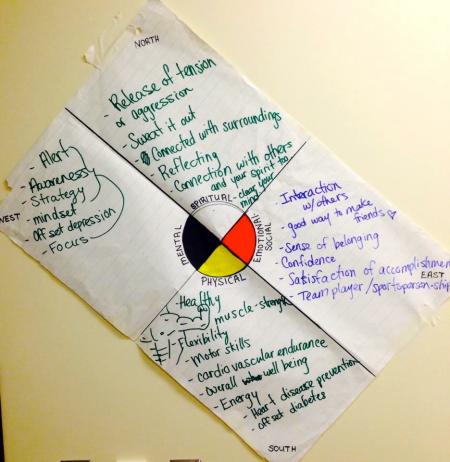 NORTH
- Release of tension
or aggression
- Sweat it out
- Connected with surroundings
- Reflecting
- Connection with others
and your spirit to
- clear your
mind
SPIRITUAL
- Alert
- Awareness
- Strategy
- mindset
- Offset depression
- Focus
WEST
MENTAL
EMOTIONAL-
SOCIAL
PHYSICAL
- Interaction
w/others
- good way to make
friends
- Sense of belonging
- Confidence
- Satisfaction of accomplishmen
EAST
- Team player/sportsperson-ship
- Healthy
muscle-strength
- Flexibility
- Motor skills
- cardio vascular endurance
- Overall well being
- Energy
- Heart disease prevention
- offset diabetes
SOUTH